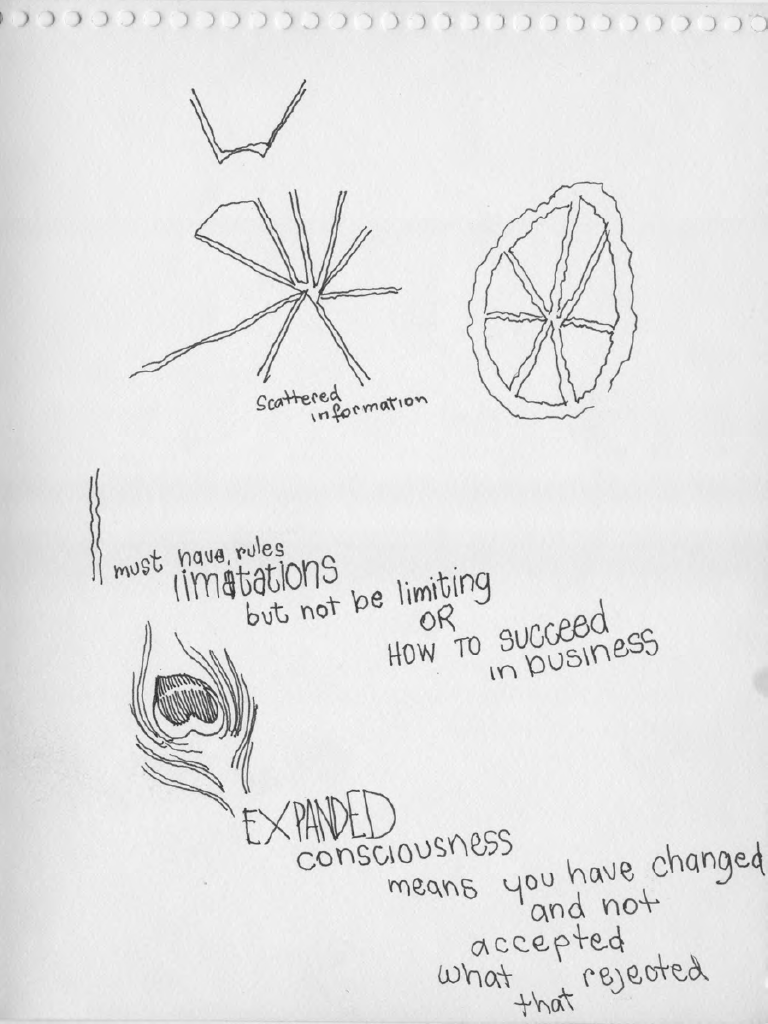 Scattered
information
must have rules
limitations
but not be limiting
OR
HOW TO SUCCEED
in business
EXPANDED
consciousness
means you have changed
and not
accepted
what rejected
that